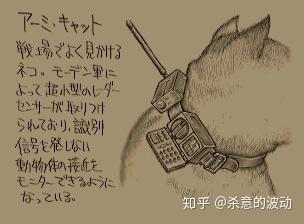 アーミ・キャット
戦場でよく見かける
ネコ。モーデン軍に
よって超小型のレーダー
センサーが取りつけ
られており,識別
信号を発しない
動物体の接近を
モニターできるように
なっている。
知乎 @杀意的波动